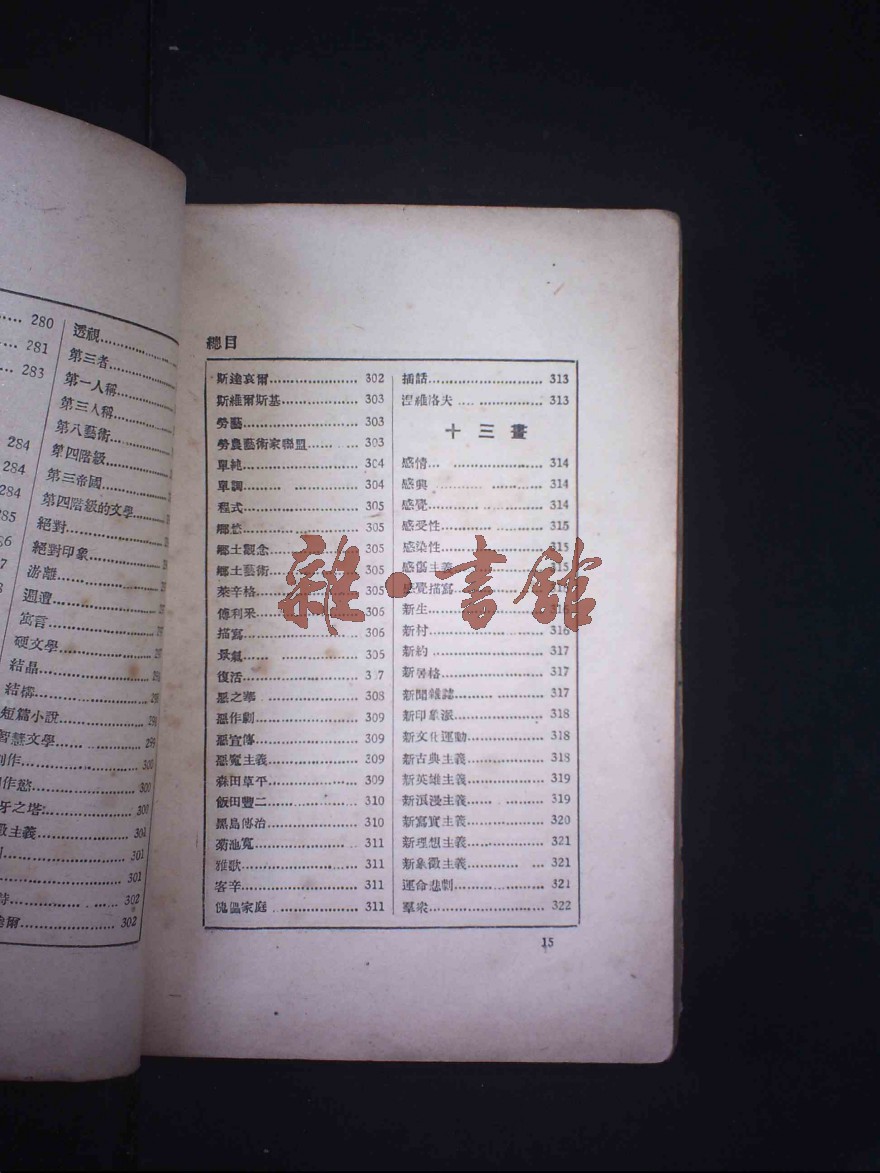 280
281
283
284
284
284
285
透視
第三者
第一人稱
第三人稱
第八藝術
第四階級
第三帝國
第四階級的文學
絕對
絕對印象
游離
週遭
寓言
硬文學
結晶
結構
短篇小說
智慧文學 299
作 300
作慾 300
牙之塔 300
主義 301
301
301
302
爾 302
總目
斯達哀爾 302
斯維爾斯基 303
勞藝 303
勞農藝術家聯盟 303
單純 304
單調 304
程式 305
鄉愁 305
鄉土觀念 305
鄉土藝術 305
萊辛格 305
傅利采 305
描寫 306
景氣 306
復活 307
惡之華 308
惡作劇 309
惡宣傳 309
惡魔主義 309
森田草平 309
飯田豐二 310
黑島傳治 310
菊池寬 311
雅歌 311
客辛 311
傀儡家庭 311
插話 313
涅維洛夫 313
十三畫
感情 314
感興 314
感覺 314
感受性 315
感染性 315
感傷主義 315
感覺描寫 316
新生 316
新村 316
新約 317
新暑格 317
新聞雜誌 317
新印象派 318
新文化運動 318
新古典主義 318
新英雄主義 319
新浪漫主義 319
新寫實主義 320
新理想主義 321
新象徵主義 321
運命悲劇 321
羣衆 322
15
雜·書館